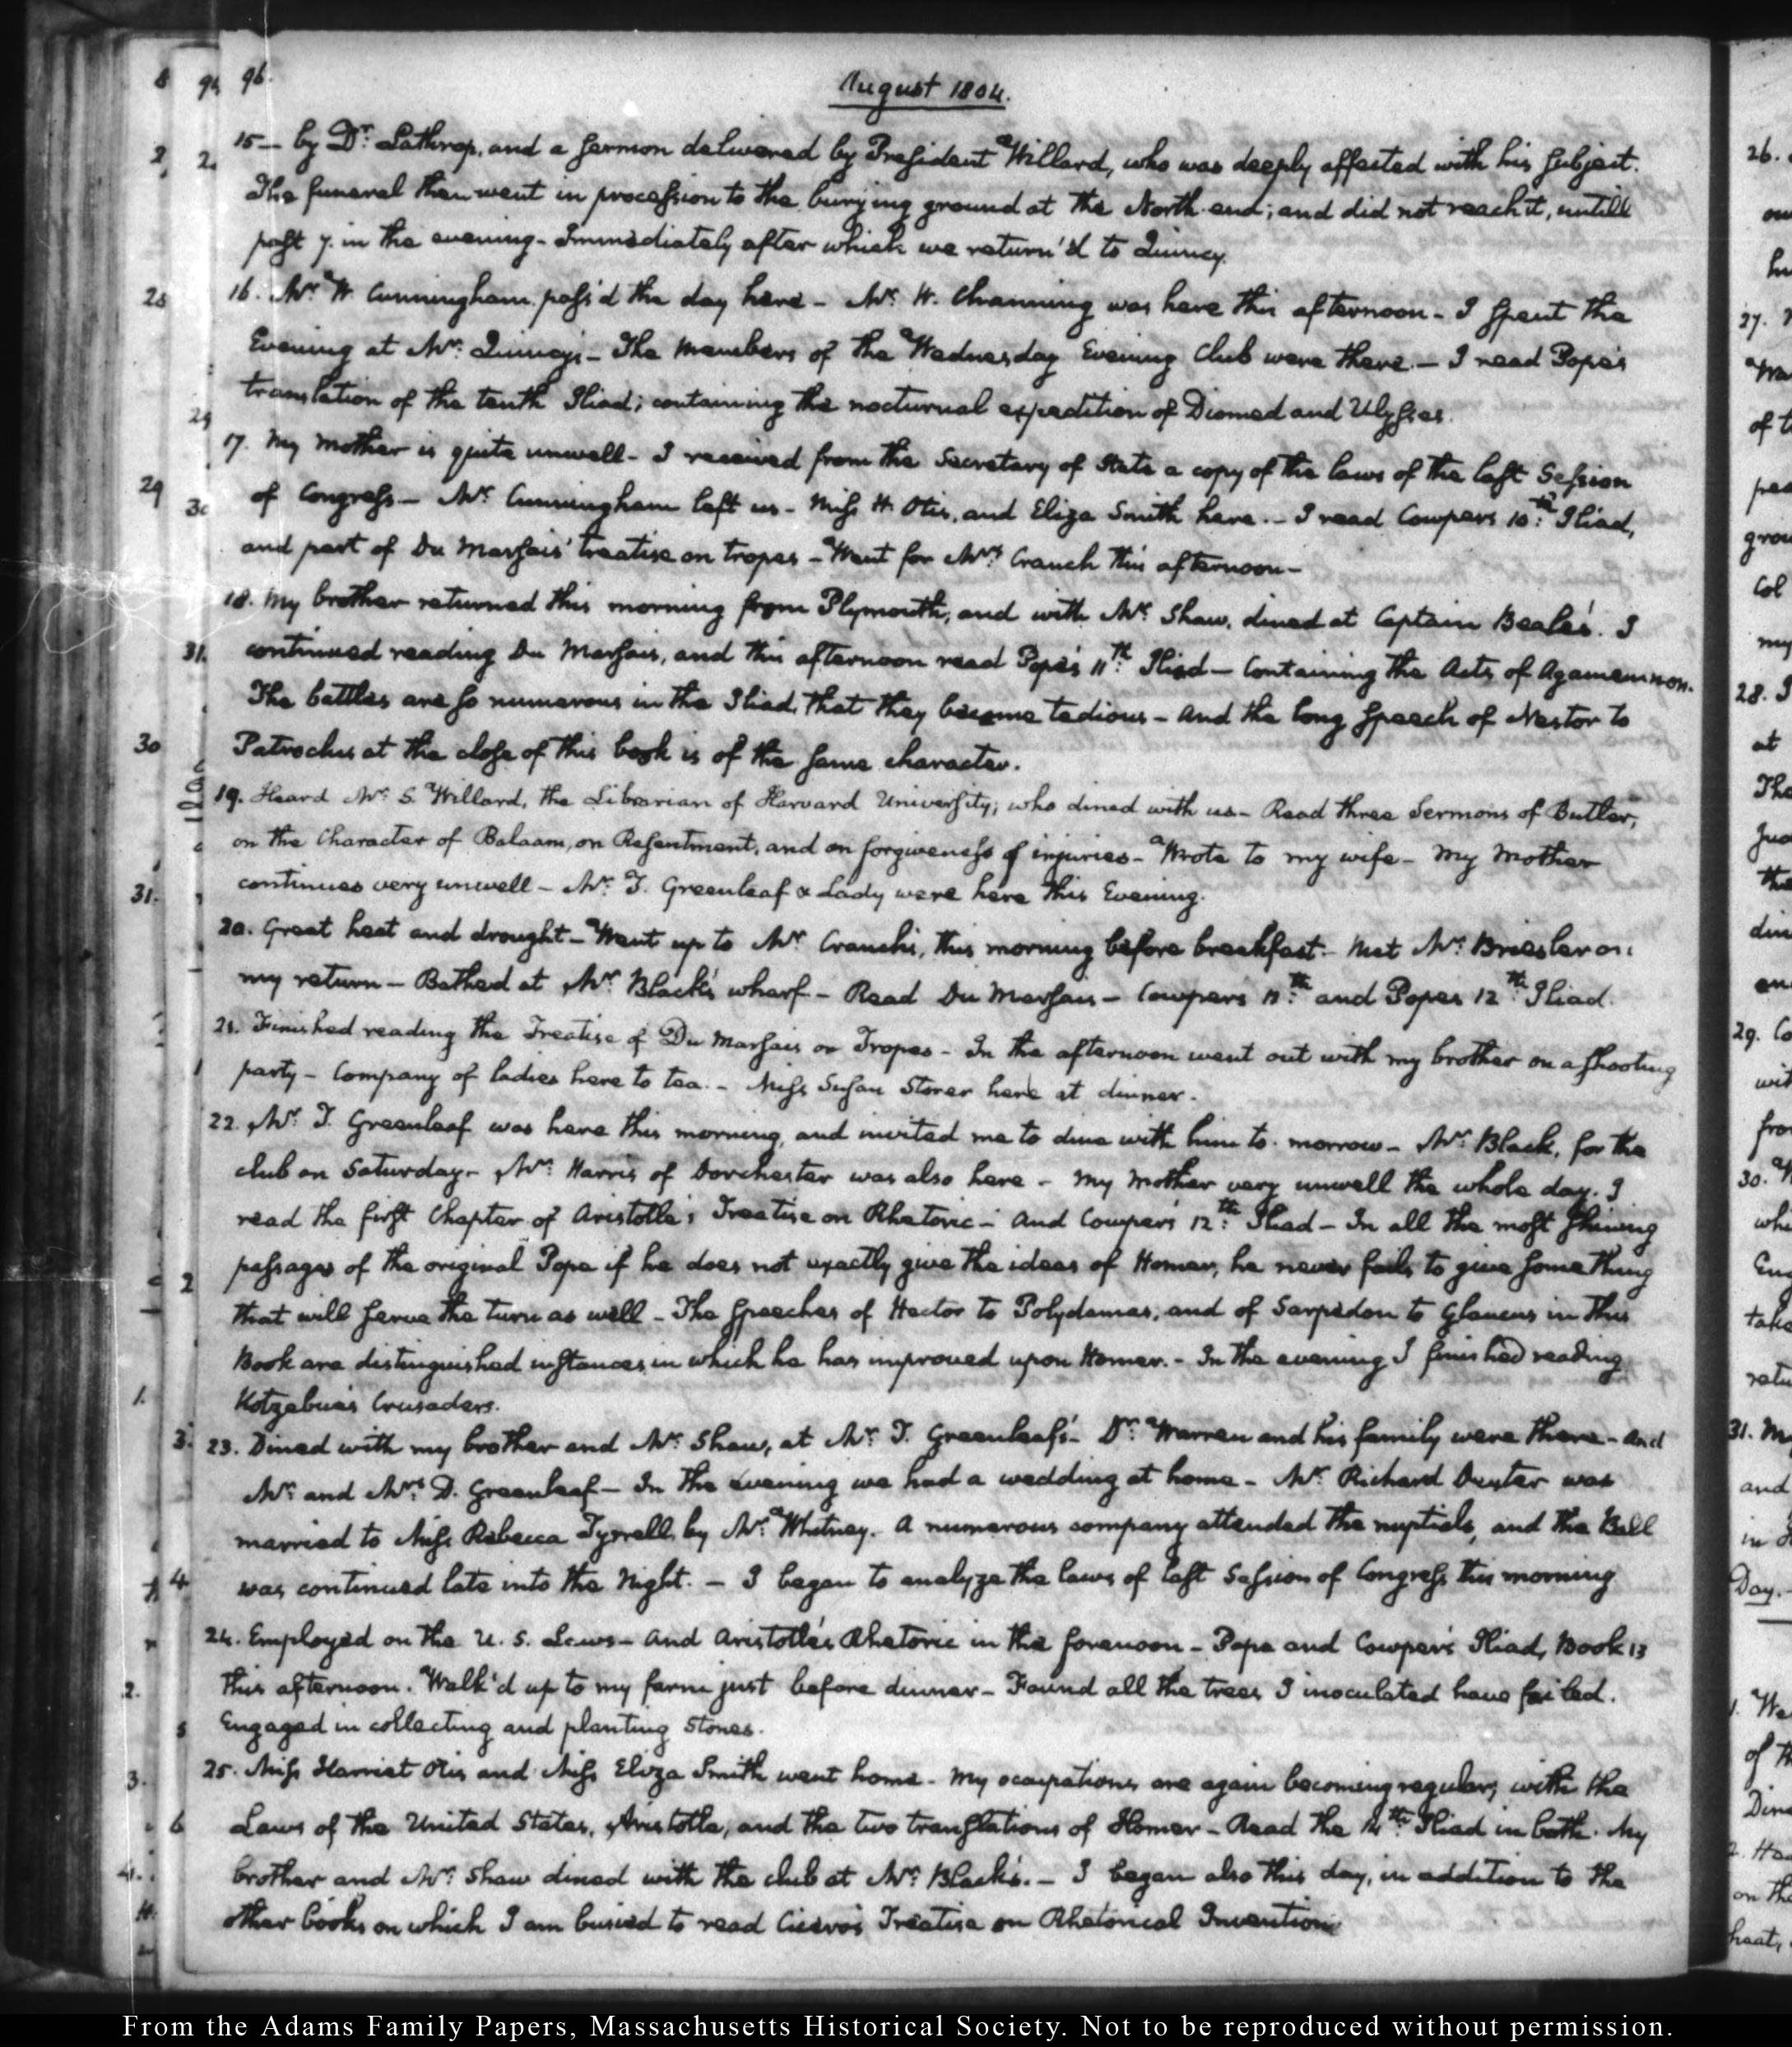 96.
August 1804.
15— by Dr. Lathrop, and a sermon delivered by President Willard, who was deeply affected with his subject.
The funeral then went in procession to the burying ground at the North-end; and did not reach it, untill
past 7. in the evening - Immediately after which we return'd to Quincy.
16. Mr. W. Cunningham pass'd the day here - Mr. W. Channing was here this afternoon - I spent the
Evening at Mr. Quincy's - The members of the Wednesday Evening Club were there. — I read Pope's
translation of the tenth Iliad; containing the nocturnal expedition of Diomed and Ulysses.
17. My mother is quite unwell - I received from the Secretary of State a copy of the laws of the last Session
of Congress — Mr. Cunningham left us - Miss H. Otis, and Eliza Smith here. - I read Cowpers 10th. Iliad,
and part of Du Marsais' treatise on tropes - Went for Mrs. Cranch this afternoon -
18. My brother returned this morning from Plymouth, and with Mr. Shaw, dined at Captain Beale's. I
continued reading Du Marsais, and this afternoon read Pope's 11th. Iliad — Containing the Acts of Agamemnon.
The battles are so numerous in the Iliad, that they become tedious - And the long speech of Nestor to
Patroclus at the close of this book is of the same character.
19. Heard Mr. S. Willard, the Librarian of Harvard University; who dined with us - Read three Sermons of Butler,
on the Character of Balaam, on Resentment, and on forgiveness of injuries - Wrote to my wife - My Mother
continues very unwell - Mr. T. Greenleaf & Lady were here this Evening.
20. Great heat and drought - Went up to Mr. Cranch's, this morning before breakfast - Met Mr. Briesler on
my return - Bathed at Mr. Black's wharf - Read Du Marsais - Cowpers 11th. and Popes 12th. Iliad.
21. Finished reading the Treatise of Du Marsais on Tropes - In the afternoon went out with my brother on a shooting
party - Company of ladies here to tea. - Miss Susan Storer here at dinner.
22. Mr. T. Greenleaf was here this morning, and invited me to dine with him to-morrow - Mr. Black, for the
club on Saturday - Mr. Harris of Dorchester was also here - My Mother very unwell the whole day. I
read the first Chapter of Aristotle's Treatise on Rhetoric - And Cowper's 12th. Iliad - In all the most shining
passages of the original Pope if he does not exactly give the ideas of Homer, he never fails to give something
that will serve the turn as well - The speeches of Hector to Polydamas, and of Sarpedon to Glaucus in this
Book are distinguished instances in which he has improved upon Homer. - In the evening I finished reading
Kotzebue's Crusaders.
23. Dined with my brother and Mr. Shaw, at Mr. T. Greenleaf's - Dr. Warren and his family were there - And
Mr. and Mrs. D. Greenleaf - In the evening we had a wedding at home - Mr. Richard Dexter was
married to Miss Rebecca Tyrrell, by Mr. Whitney. A numerous company attended the nuptials, and the Ball
was continued late into the Night. - I began to analyze the laws of last Session of Congress this morning
24. Employed on the U. S. Laws - And Aristotle's Rhetoric in the forenoon - Pope and Cowper's Iliad, Book 13
this afternoon. Walk'd up to my farm just before dinner - Found all the trees I inoculated have failed.
Engaged in collecting and planting stones.
25. Miss Harriet Otis and Miss Eliza Smith went home - My occupations are again becoming regular; with the
Laws of the United States, Aristotle, and the two translations of Homer - Read the 14th. Iliad in both. My
brother and Mr. Shaw dined with the club at Mr. Black's. - I began also this day, in addition to the
other books on which I am busied to read Cicero's Treatise on Rhetorical Invention
From the Adams Family Papers, Massachusetts Historical Society. Not to be reproduced without permission.